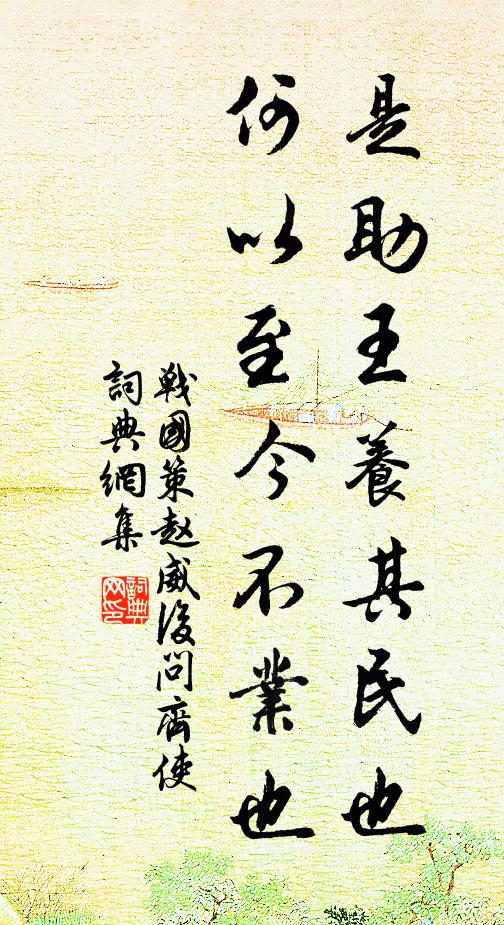 是助王養其民也
何以至今不業也
戰國策趙威後問齊使
詞典網集
詞典
网印